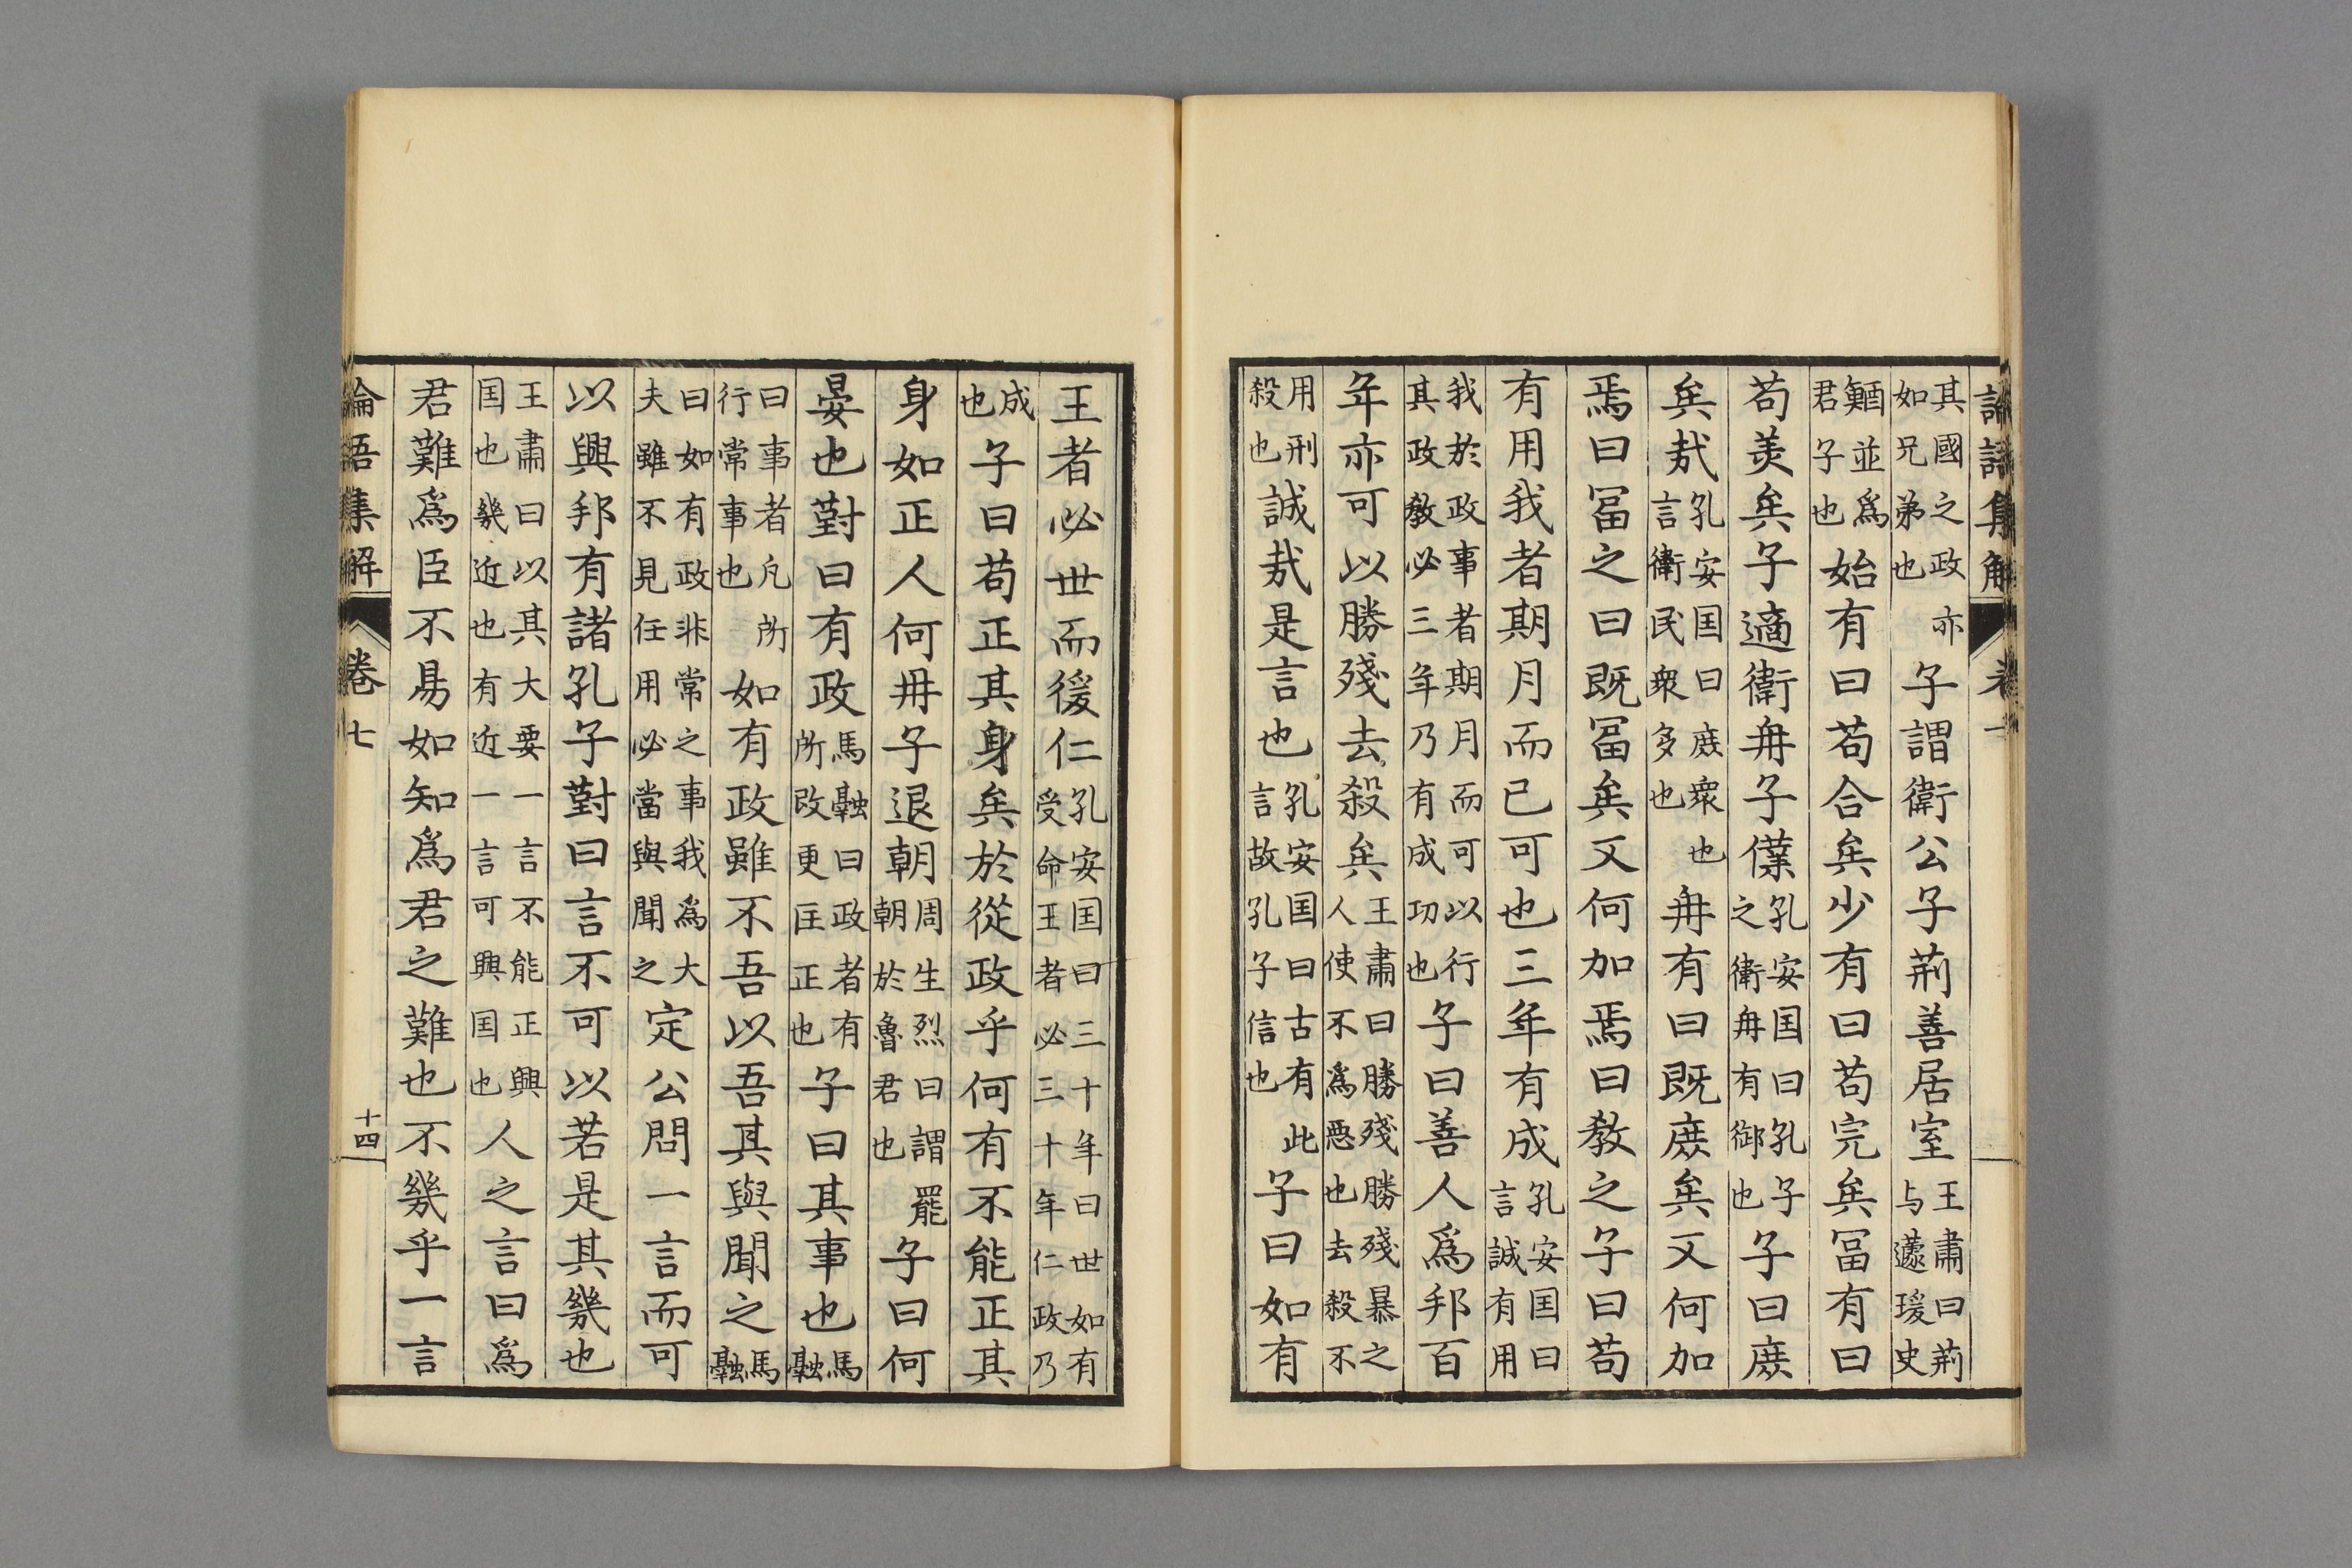 論語集解
其國之政亦如兄弟也子謂衛公子荊善居室王肅曰荊与蘧瑗史
鰌並爲君子也始有曰苟合矣少有曰苟完矣冨有曰
苟美矣子適衛冉子僕孔安国曰孔子之衛冉有御也子曰庶
矣哉孔安国曰庶衆也言衛民衆多也冉有曰既庶矣又何加
焉曰冨之曰既冨矣又何加焉曰教之子曰苟
有用我者期月而已可也三年有成孔安国曰言誠有用
我於政事者期月而可以行其政教必三年乃有成功也子曰善人爲邦百
年亦可以勝殘去殺矣王肅曰勝殘勝殘暴之人使不爲悪也去殺不
用刑殺也誠哉是言也孔安国曰古有此言故孔子信也子曰如有
王者必世而後仁孔安国曰三十年曰世如有受命王者必三十年仁政乃
成也子曰苟正其身矣於從政乎何有不能正其
身如正人何冉子退朝周生烈曰謂罷朝於魯君也子曰何
晏也對曰有政馬融曰政者有所改更匡正也子曰其事也馬融
曰事者凡所行常事也如有政雖不吾以吾其與聞之馬融
曰如有政非常之事我爲大夫雖不見任用必當與聞之定公問一言而可
以興邦有諸孔子對曰言不可以若是其幾也
王肅曰以其大要一言不能正興国也幾近也有近一言可興国也人之言曰爲
君難爲臣不易如知爲君之難也不幾乎一言
論語集解
卷七
十四